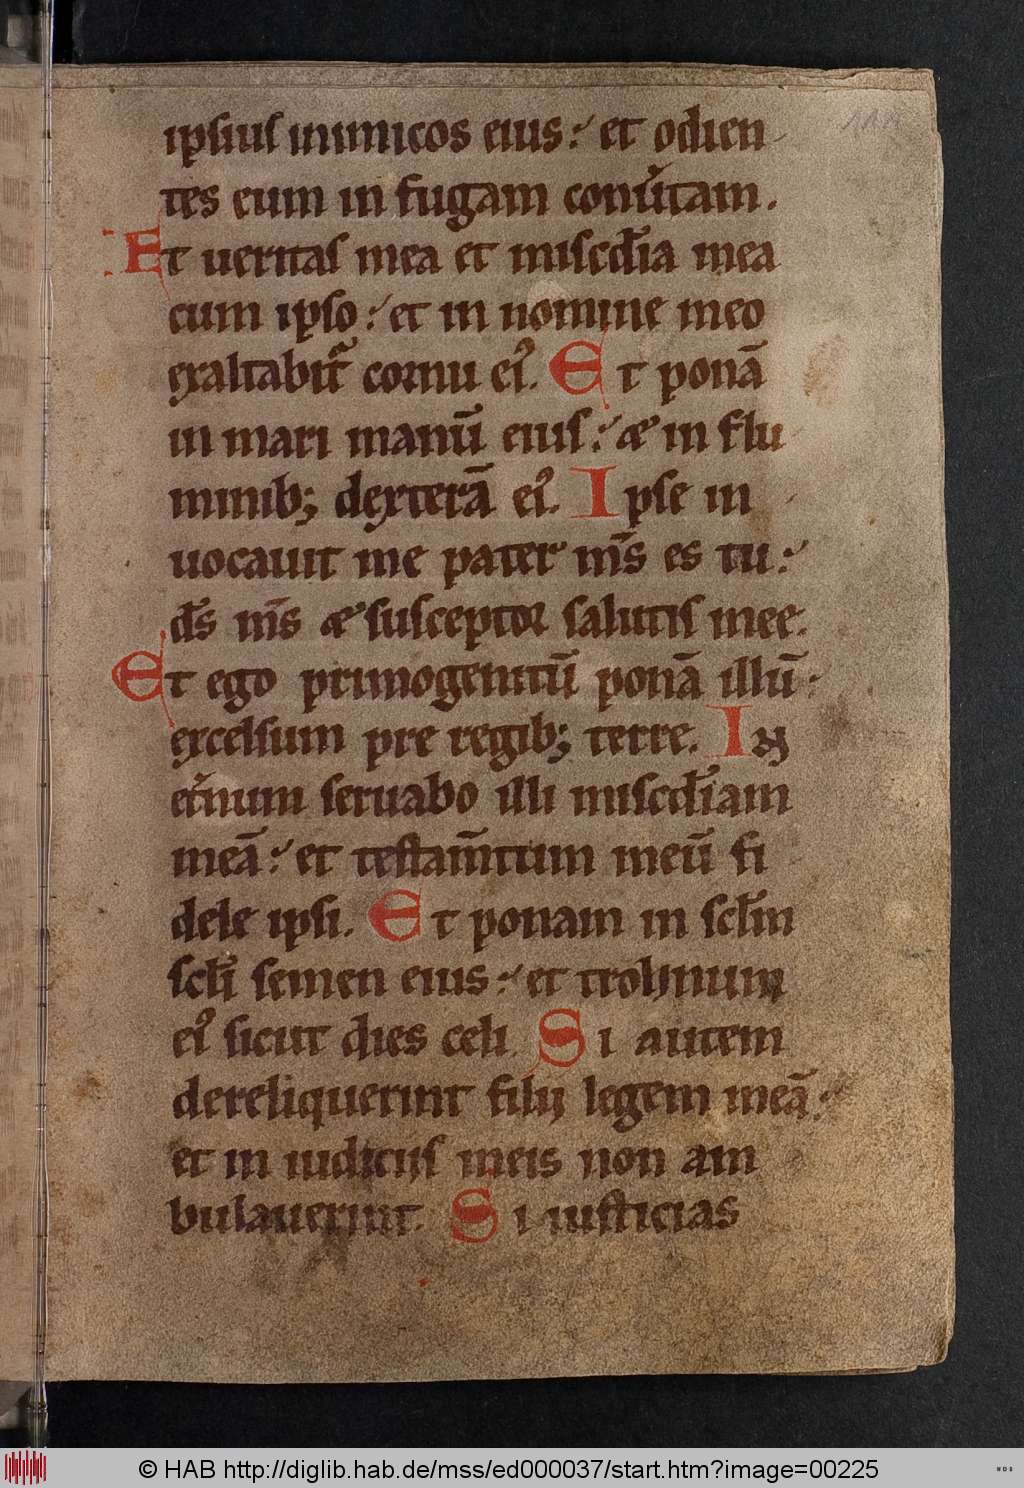 ipsius inimicos eius: et odien-
tes eum in fugam conu̓tam.
Et ueritas mea et misc̄dia mea
cum ipso: et in nomine meo
exaltabit᷑ cornu ei᷒. Et ponā
in mari manū eius: æ in flu-
minib; dexterā ei᷒. Ipse in-
uocauit me pater m̄s es tu:
d̄s m̄s æ susceptor salutis mee.
Et ego primogenitū ponā illū:
excelsum pre regib; terre. In
et̓num seruabo illi misc̄diam
meā: et testam̄tum meū fi-
dele ipsi. Et ponam in scl̄m
scl̄i semen eius: et trohnum
ei᷒ sicut dies celi. Si autem
dereliquerint filij legem meā:
et in iudiciis meis non am
bulauerint. Si iusticias
© HAB http://diglib.hab.de/mss/ed000037/start.htm?image=00225